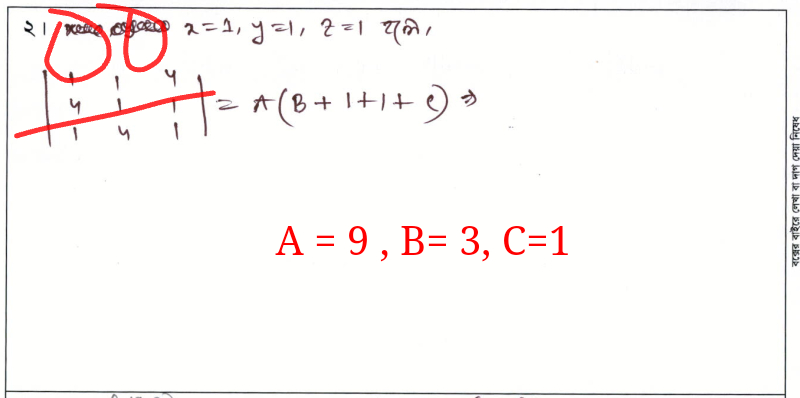 ২। x=1, y=1, z=1 হলে,
| 1 1 4 |
| 4 1 1 | = A(B+1+1+C) ⇒
| 1 4 1 |
A = 9 , B= 3, C=1
বক্সের বাইরে লেখা বা দাগ দেয়া নিষেধ